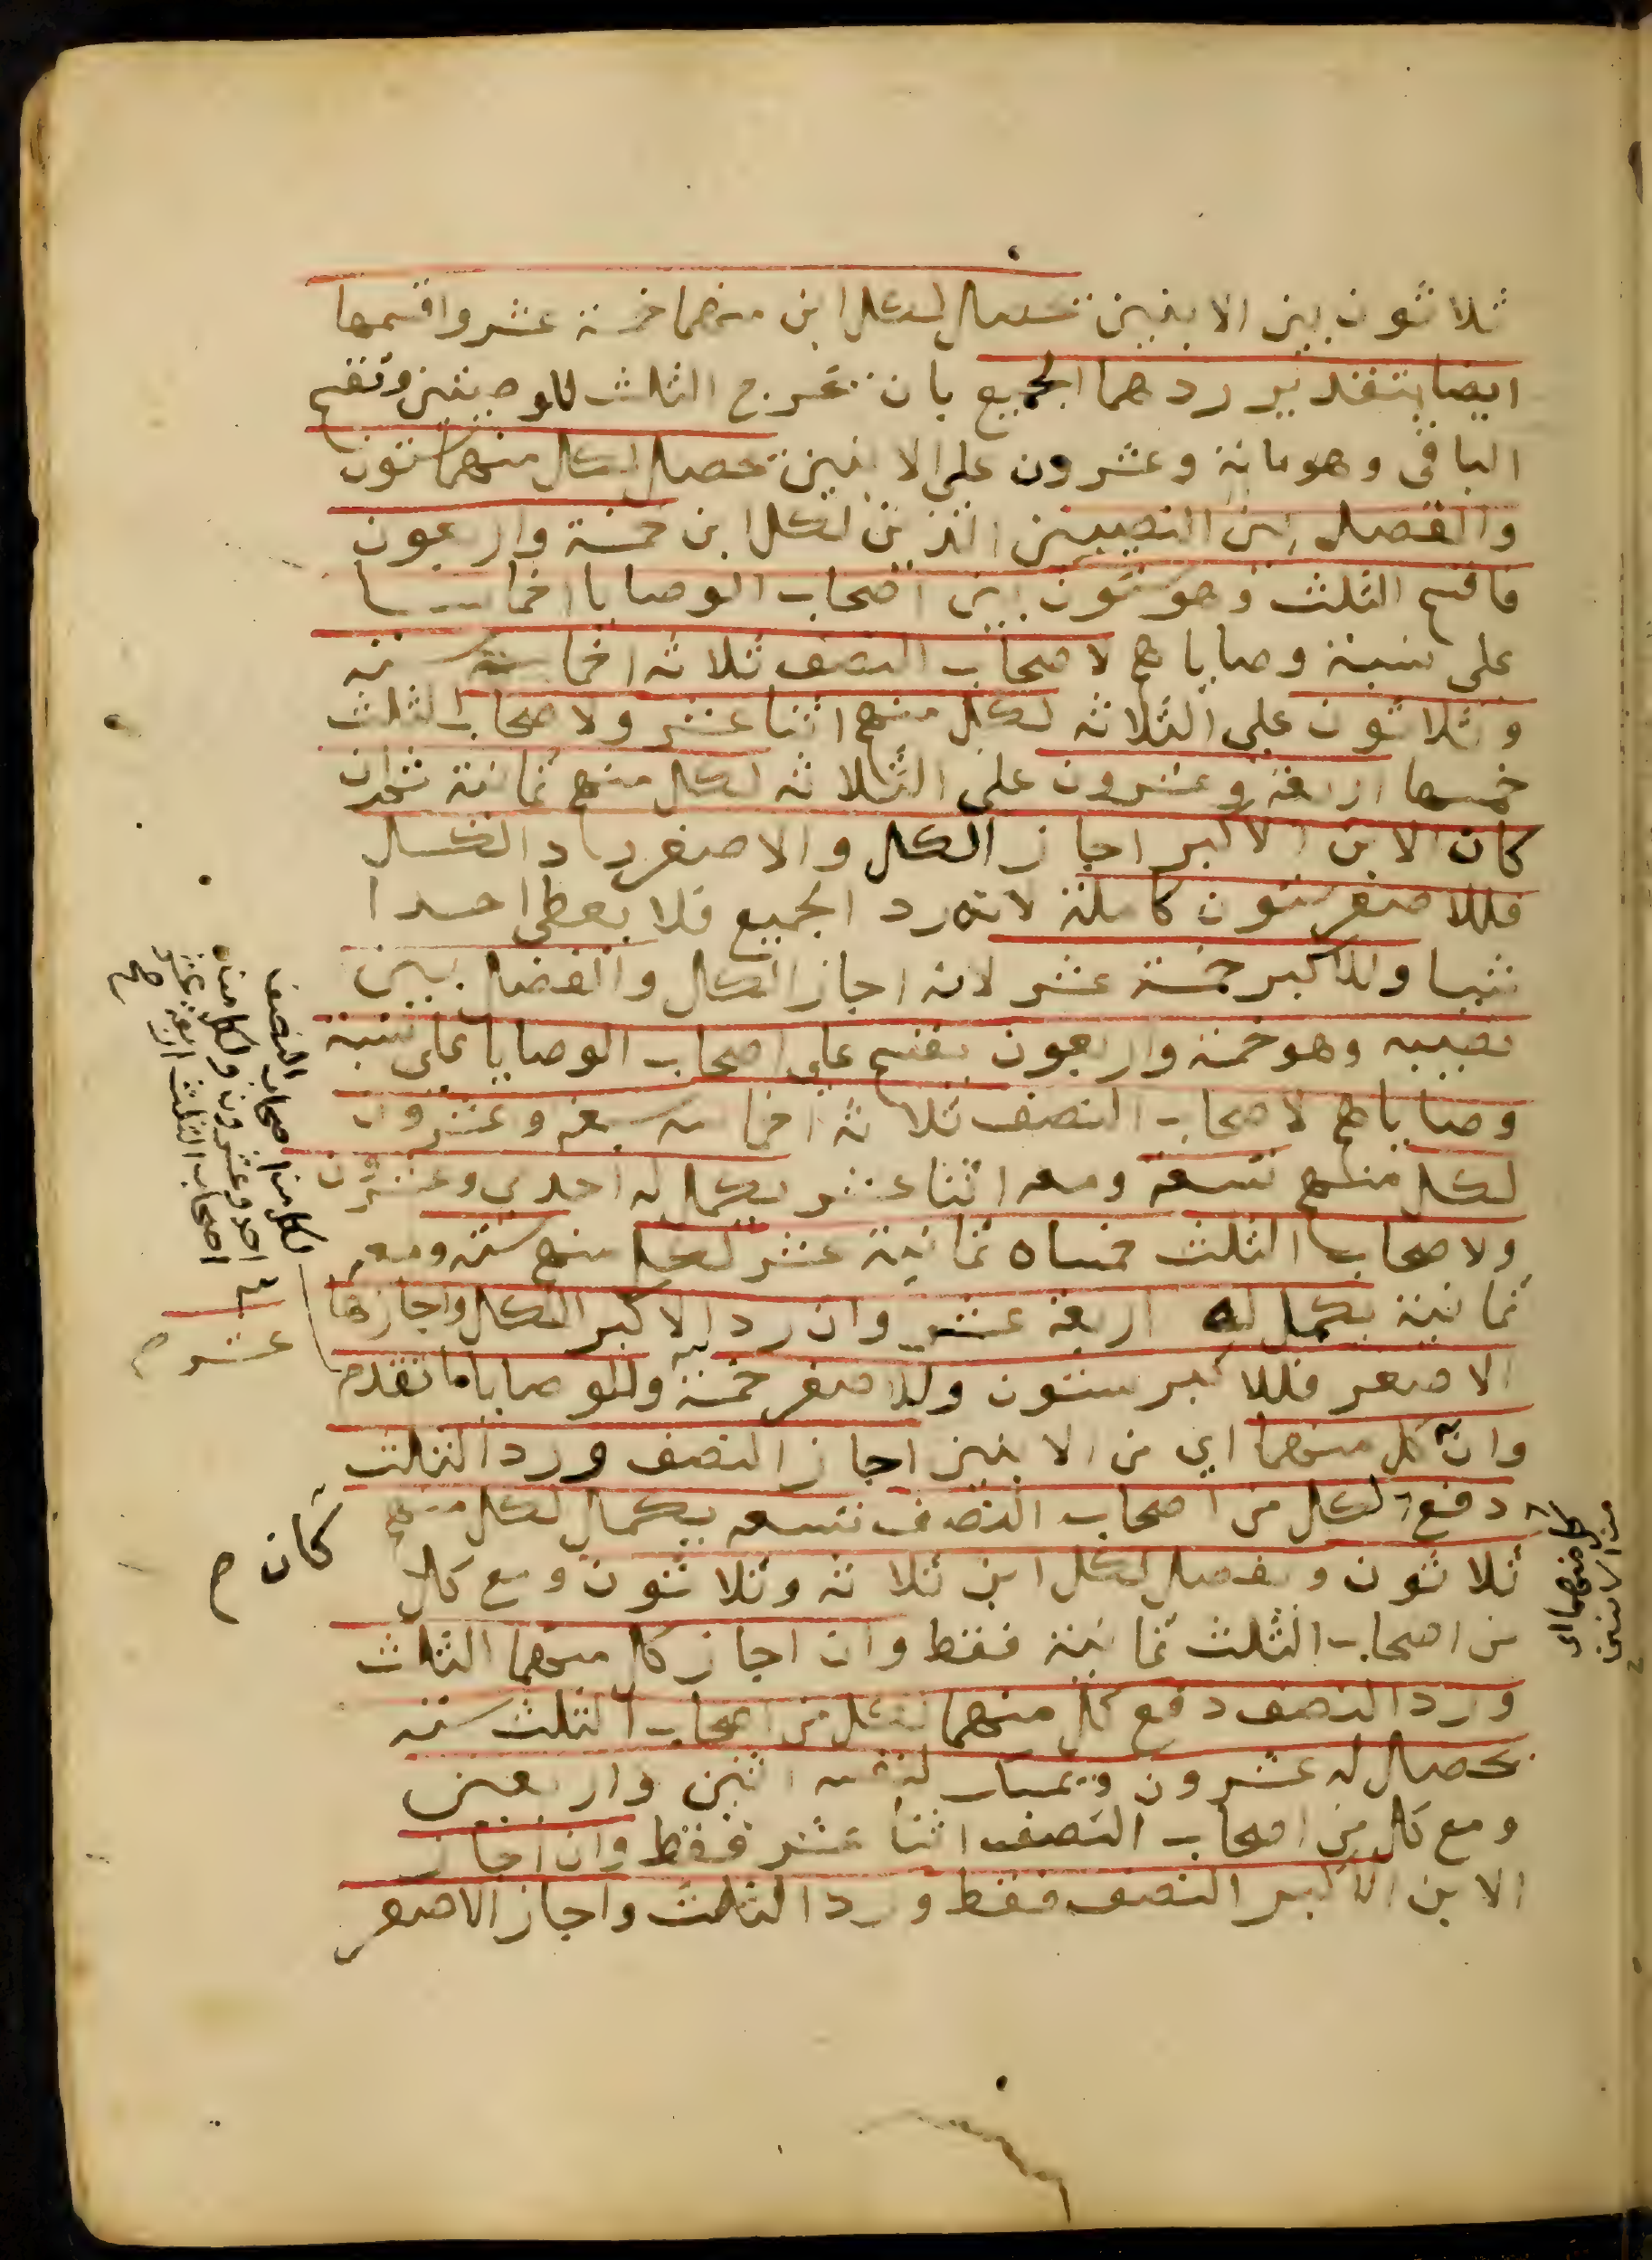 ثلاثون بين الابنين تحصل لكل ابن منهما خمسة عشر واقسمها
ايضا بتقدير ردهما الجميع بان تخرج الثلث للوصيتين وتقسم
الباقي وهو مائة وعشرون على الابنين تحصل لكل منهما ستون
والفضل بين النصيبين الذين لكل ابن خمسة واربعون
فاقسم الثلث وهو ستون بين اصحاب الوصايا اخماسا
على نسبة وصاياهم لاصحاب النصف ثلاثة اخماسه ستة
وثلاثون على الثلاثة لكل منهم اثنا عشر ولاصحاب الثلث
خمسها اربعة وعشرون على الثلاثة لكل منهم ثمانية ثم ان
كان الابن الاكبر اجاز الكل والاصغر راد الكل
فللاصغر ستون كاملة لانه رد الجميع فلا يعطى احدا
شيا وللاكبر خمسة عشر لانه اجاز الكل والفضل بين
نصيبيه وهو خمسة واربعون يقسم على اصحاب الوصايا على نسبة
وصاياهم لاصحاب النصف ثلاثة اخماسه سبعة وعشرون
لكل منهم تسعة ومعه اثنا عشر يكمل له احدى وعشرون
ولاصحاب الثلث خمساه ثمانية عشر لكل منهم ستة ومعه
ثمانية يكمل له اربعة عشر وان رد الاكبر الكل واجازها
الاصغر فللاكبر ستون وللاصغر خمسة وللوصايا ما تقدم
وان كل منهما اي من الابنين اجاز النصف ورد الثلث
دفع لكل من اصحاب النصف تسعة يكمل لكل منهم
ثلاثون ويفضل لكل ابن ثلاثة وثلاثون ومع كل
من اصحاب الثلث ثمانية فقط وان اجاز كل منهما الثلث
ورد النصف دفع كل منهما لكل من اصحاب الثلث ستة
يحصل له عشرون ويمسك لنفسه اثنين واربعين
ومع كل من اصحاب النصف اثنا عشر فقط وان اجاز
الابن الاكبر النصف فقط ورد الثلث واجاز الاصغر
لكل من اصحاب النصف
احد وعشرون ولكل من
اصحاب الثلث اربعة عشر
صح
عشر م
كان م
كل منهما اي
من الابنين